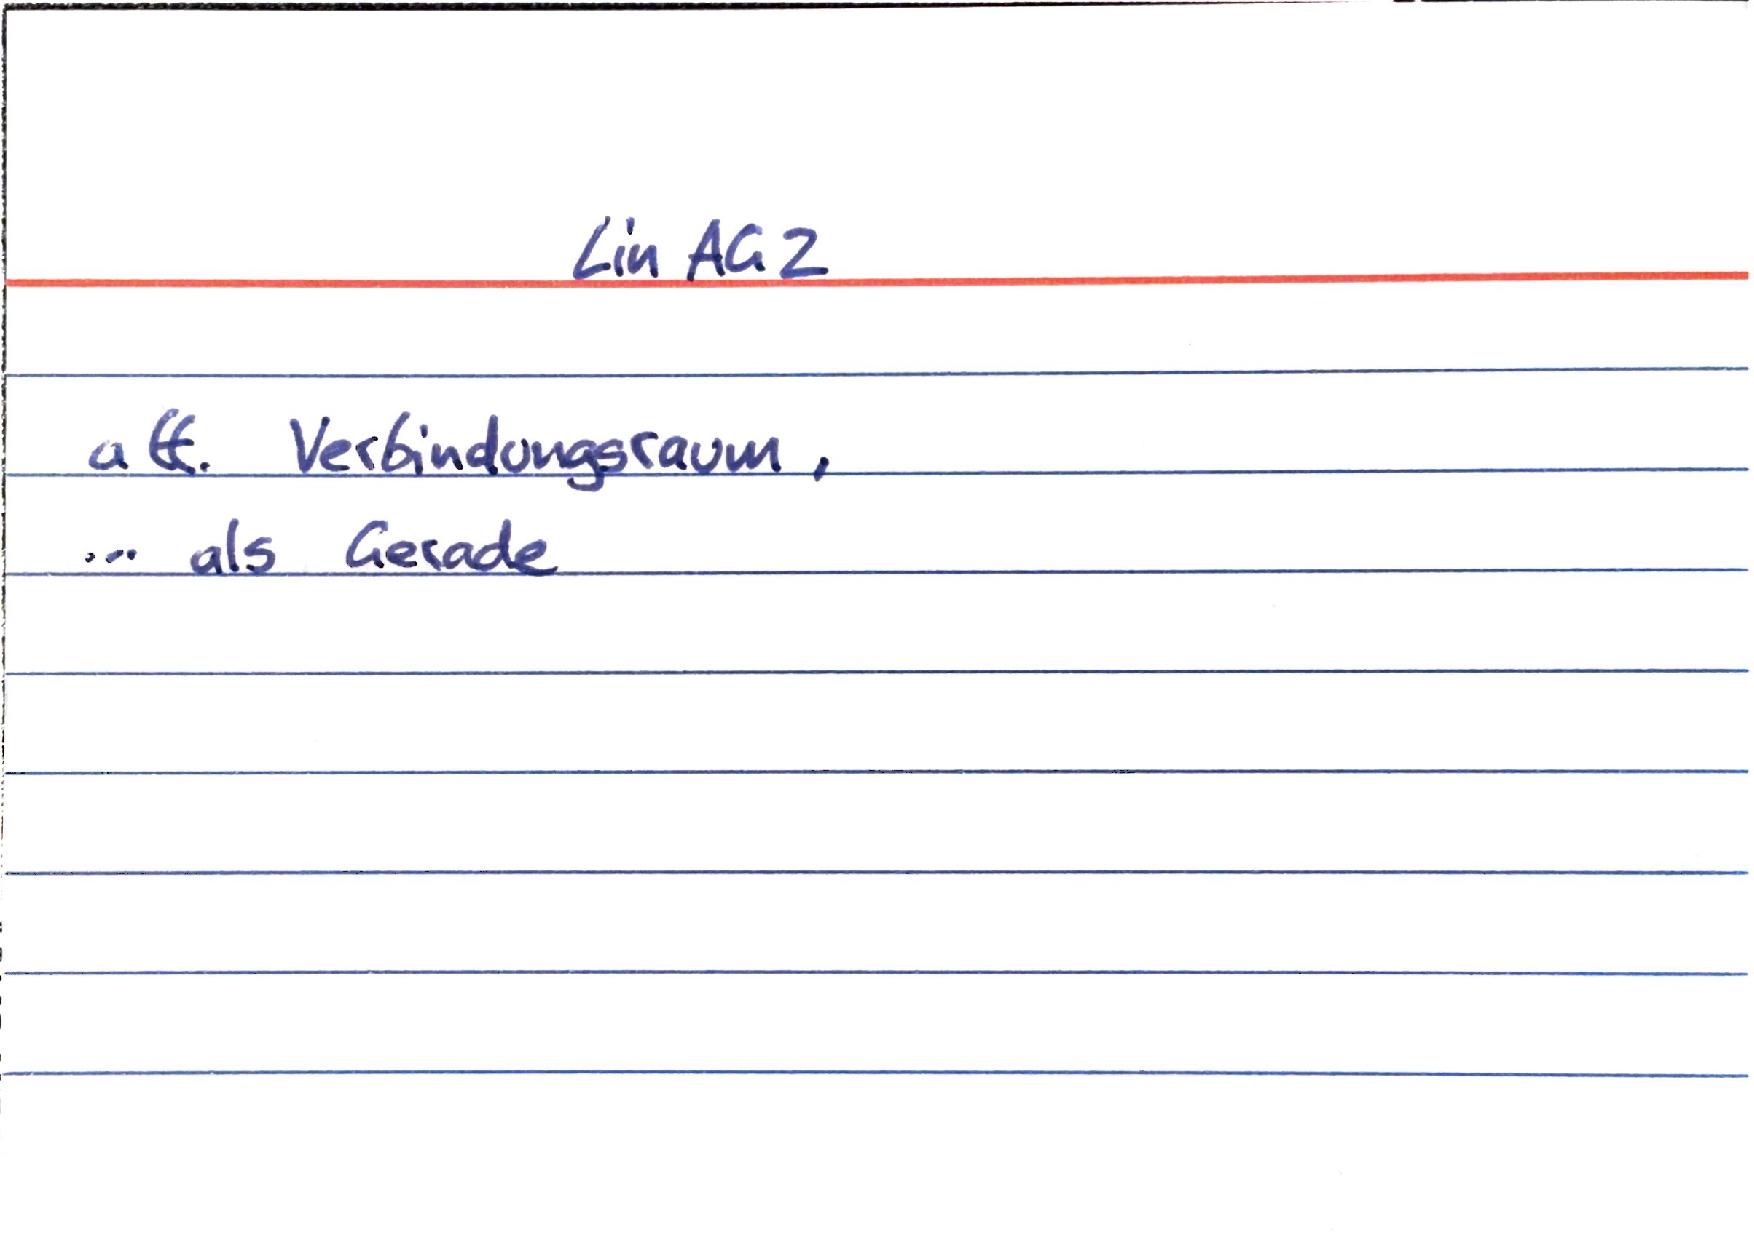 Lin AG 2
aff. Verbindungsraum,
... als Gerade